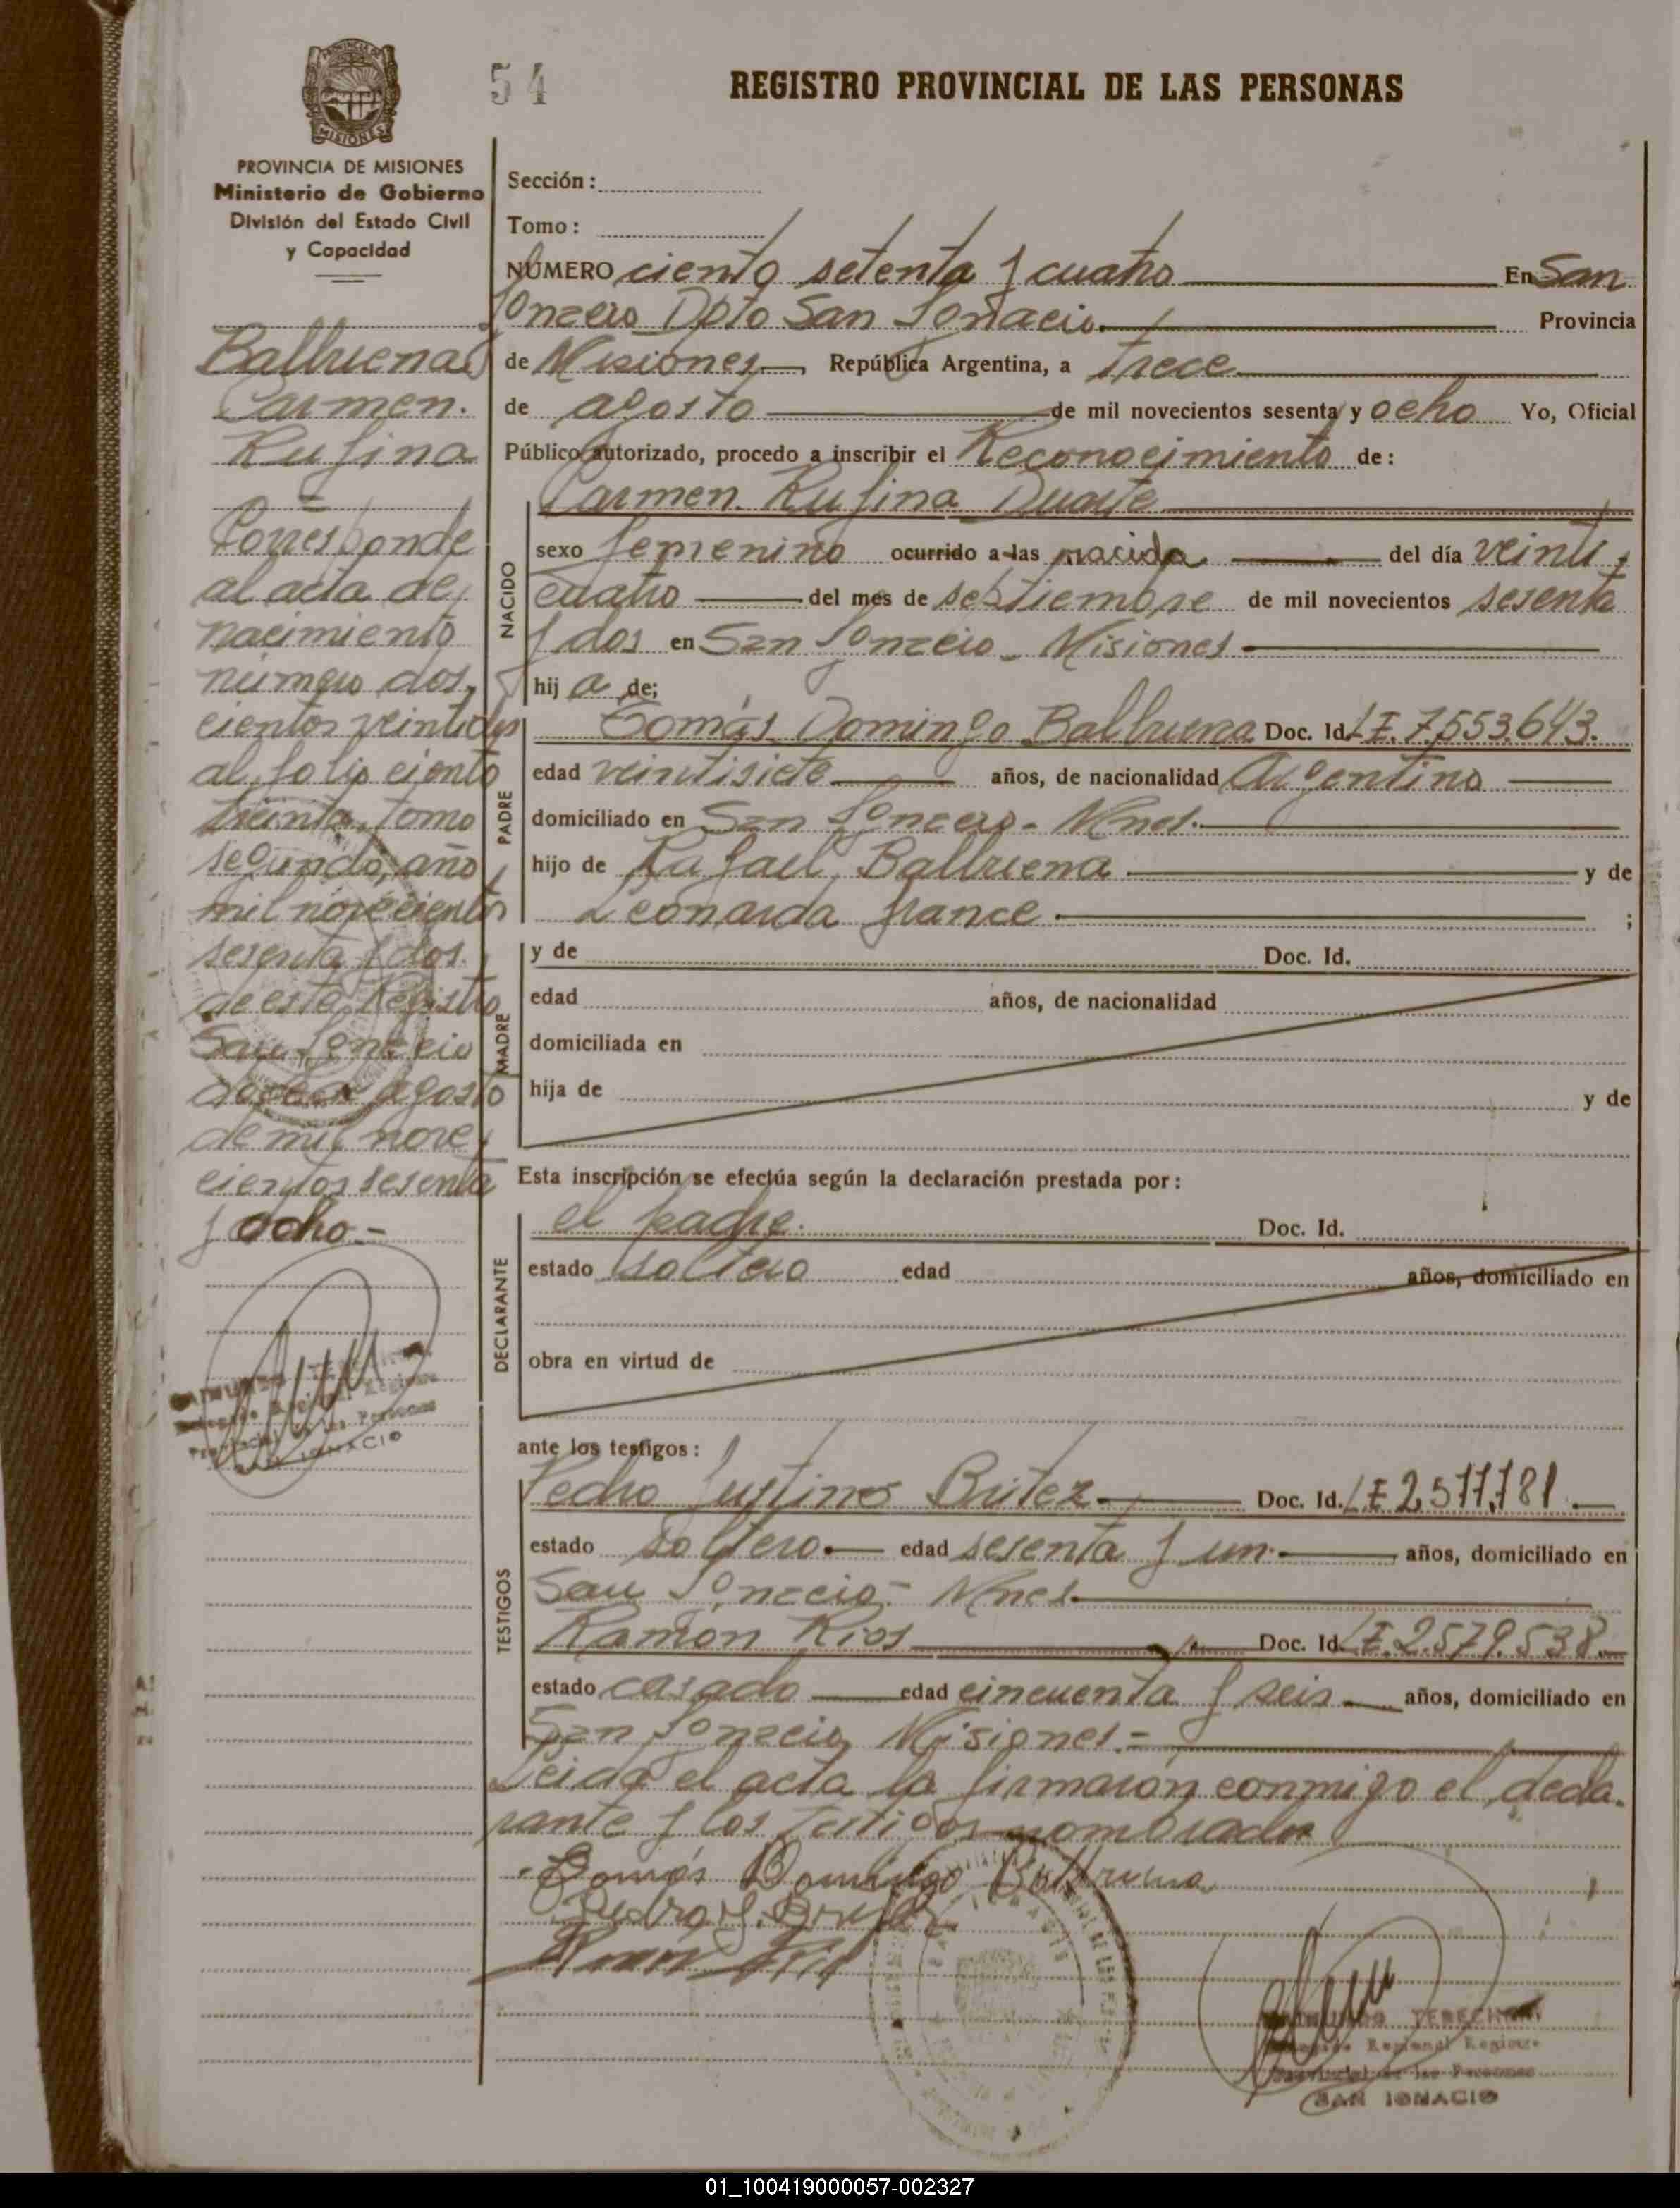 54
REGISTRO PROVINCIAL DE LAS PERSONAS
PROVINCIA DE MISIONES
Ministerio de Gobierno
División del Estado Civil
y Capacidad
Ballruena
Carmen.
Rufina
=
Corresponde
al acta de
nacimiento
número dos,
cientos veintidos
al folio ciento
treinta, tomo
segundo, año
mil novecientos
sesenta y dos.
de este Registro
San Ignacio
agosto
de mil nove,
cientos sesenta
y ocho-
Provincial de las Personas
IGNACIO
Sección:
Tomo:
NÚMERO ciento setenta y cuatro En San
Ignacio Dpto San Ignacio. Provincia
de Misiones República Argentina, a trece
de agosto de mil novecientos sesenta y ocho Yo, Oficial
Público autorizado, procedo a inscribir el Reconocimiento de:
Carmen Rufina Duarte
NACIDO
sexo femenino ocurrido a las nacida del día veinti,
cuatro del mes de septiembre de mil novecientos sesenta
y dos en San Ignacio - Misiones
hij a de;
PADRE
Tomás Domingo Ballruena Doc. Id. LE. 7.553.643.
edad veintisiete años, de nacionalidad Argentino
domiciliado en San Ignacio - Mnes.
hijo de Rafael Ballruena y de
Leonarda France ;
MADRE
y de Doc. Id.
edad años, de nacionalidad
domiciliada en
hija de y de
Esta inscripción se efectúa según la declaración prestada por:
DECLARANTE
el padre. Doc. Id.
estado soltero edad años, domiciliado en
obra en virtud de
ante los testigos:
TESTIGOS
Pedro Justino Britez Doc. Id. LE 2.577.781
estado soltero edad sesenta y un años, domiciliado en
San Ignacio - Mnes.
Ramón Rios Doc. Id. LE. 2.579.538
estado casado edad cincuenta y seis años, domiciliado en
San Ignacio Misiones.=
Leida el acta la firmaron conmigo el decla.
rante y los testigos nombrados
Tomás Domingo Ballruena
Pedro J. Britez
Ramon Rios
Regional Registro
Provincial de las Personas
SAN IGNACIO
01_100419000057-002327